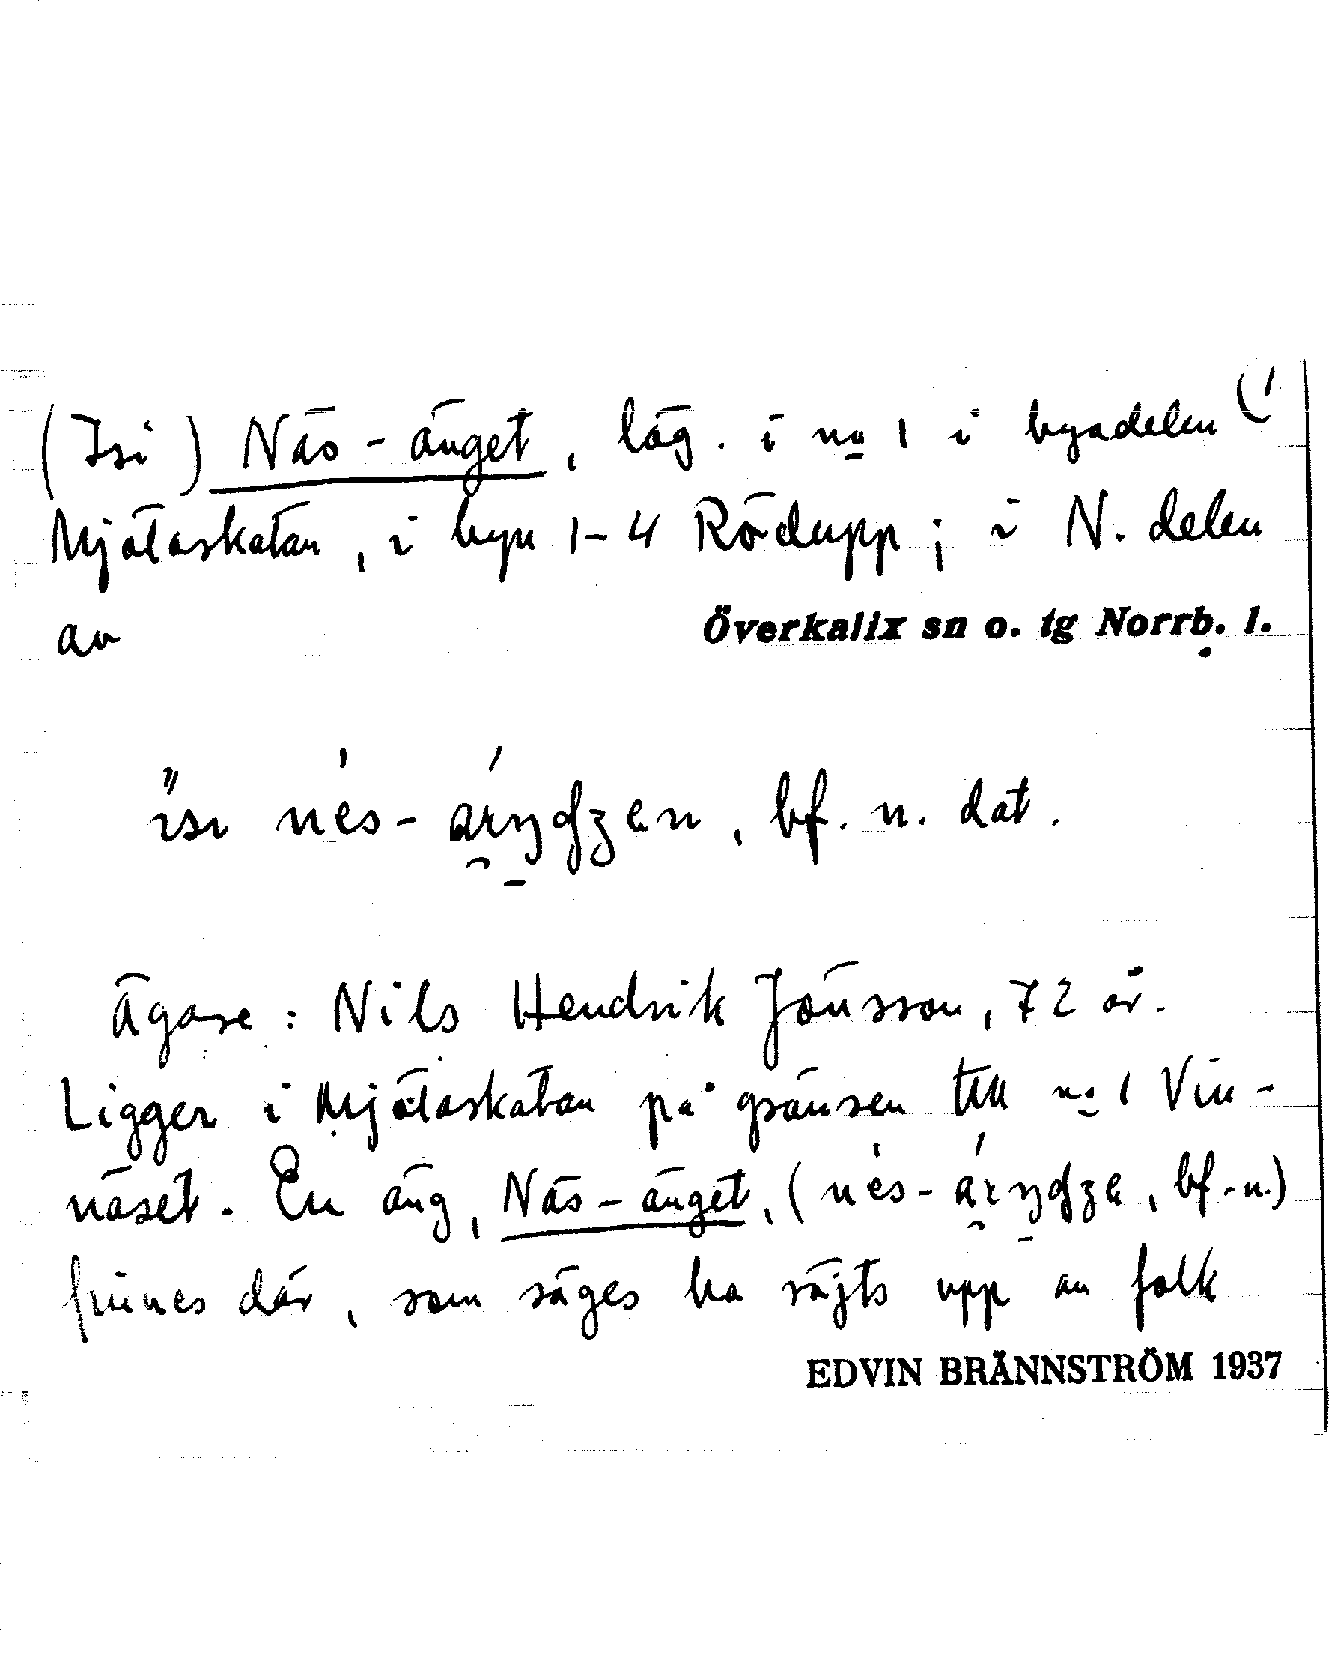 (Isi) Näs-änget, läg. i no 1 i byadelen (1
Mjötaskatan, i byn 1-4 Rödupp; i N. delen
av Överkalix sn o. tg Norrb. l.
bf. n. dat.
Ägare: Nils Hendrik Jönsson, 72 år.
Ligger i Mjötaskatan på gränsen till no 1 Vin-
näset. En äng, Näs-änget, ( bf. n.)
finnes där, som säges ha röjts upp av folk
EDVIN BRÄNNSTRÖM 1937